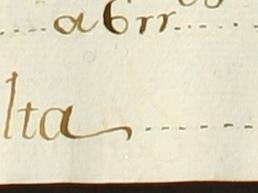 a 6rr
lta